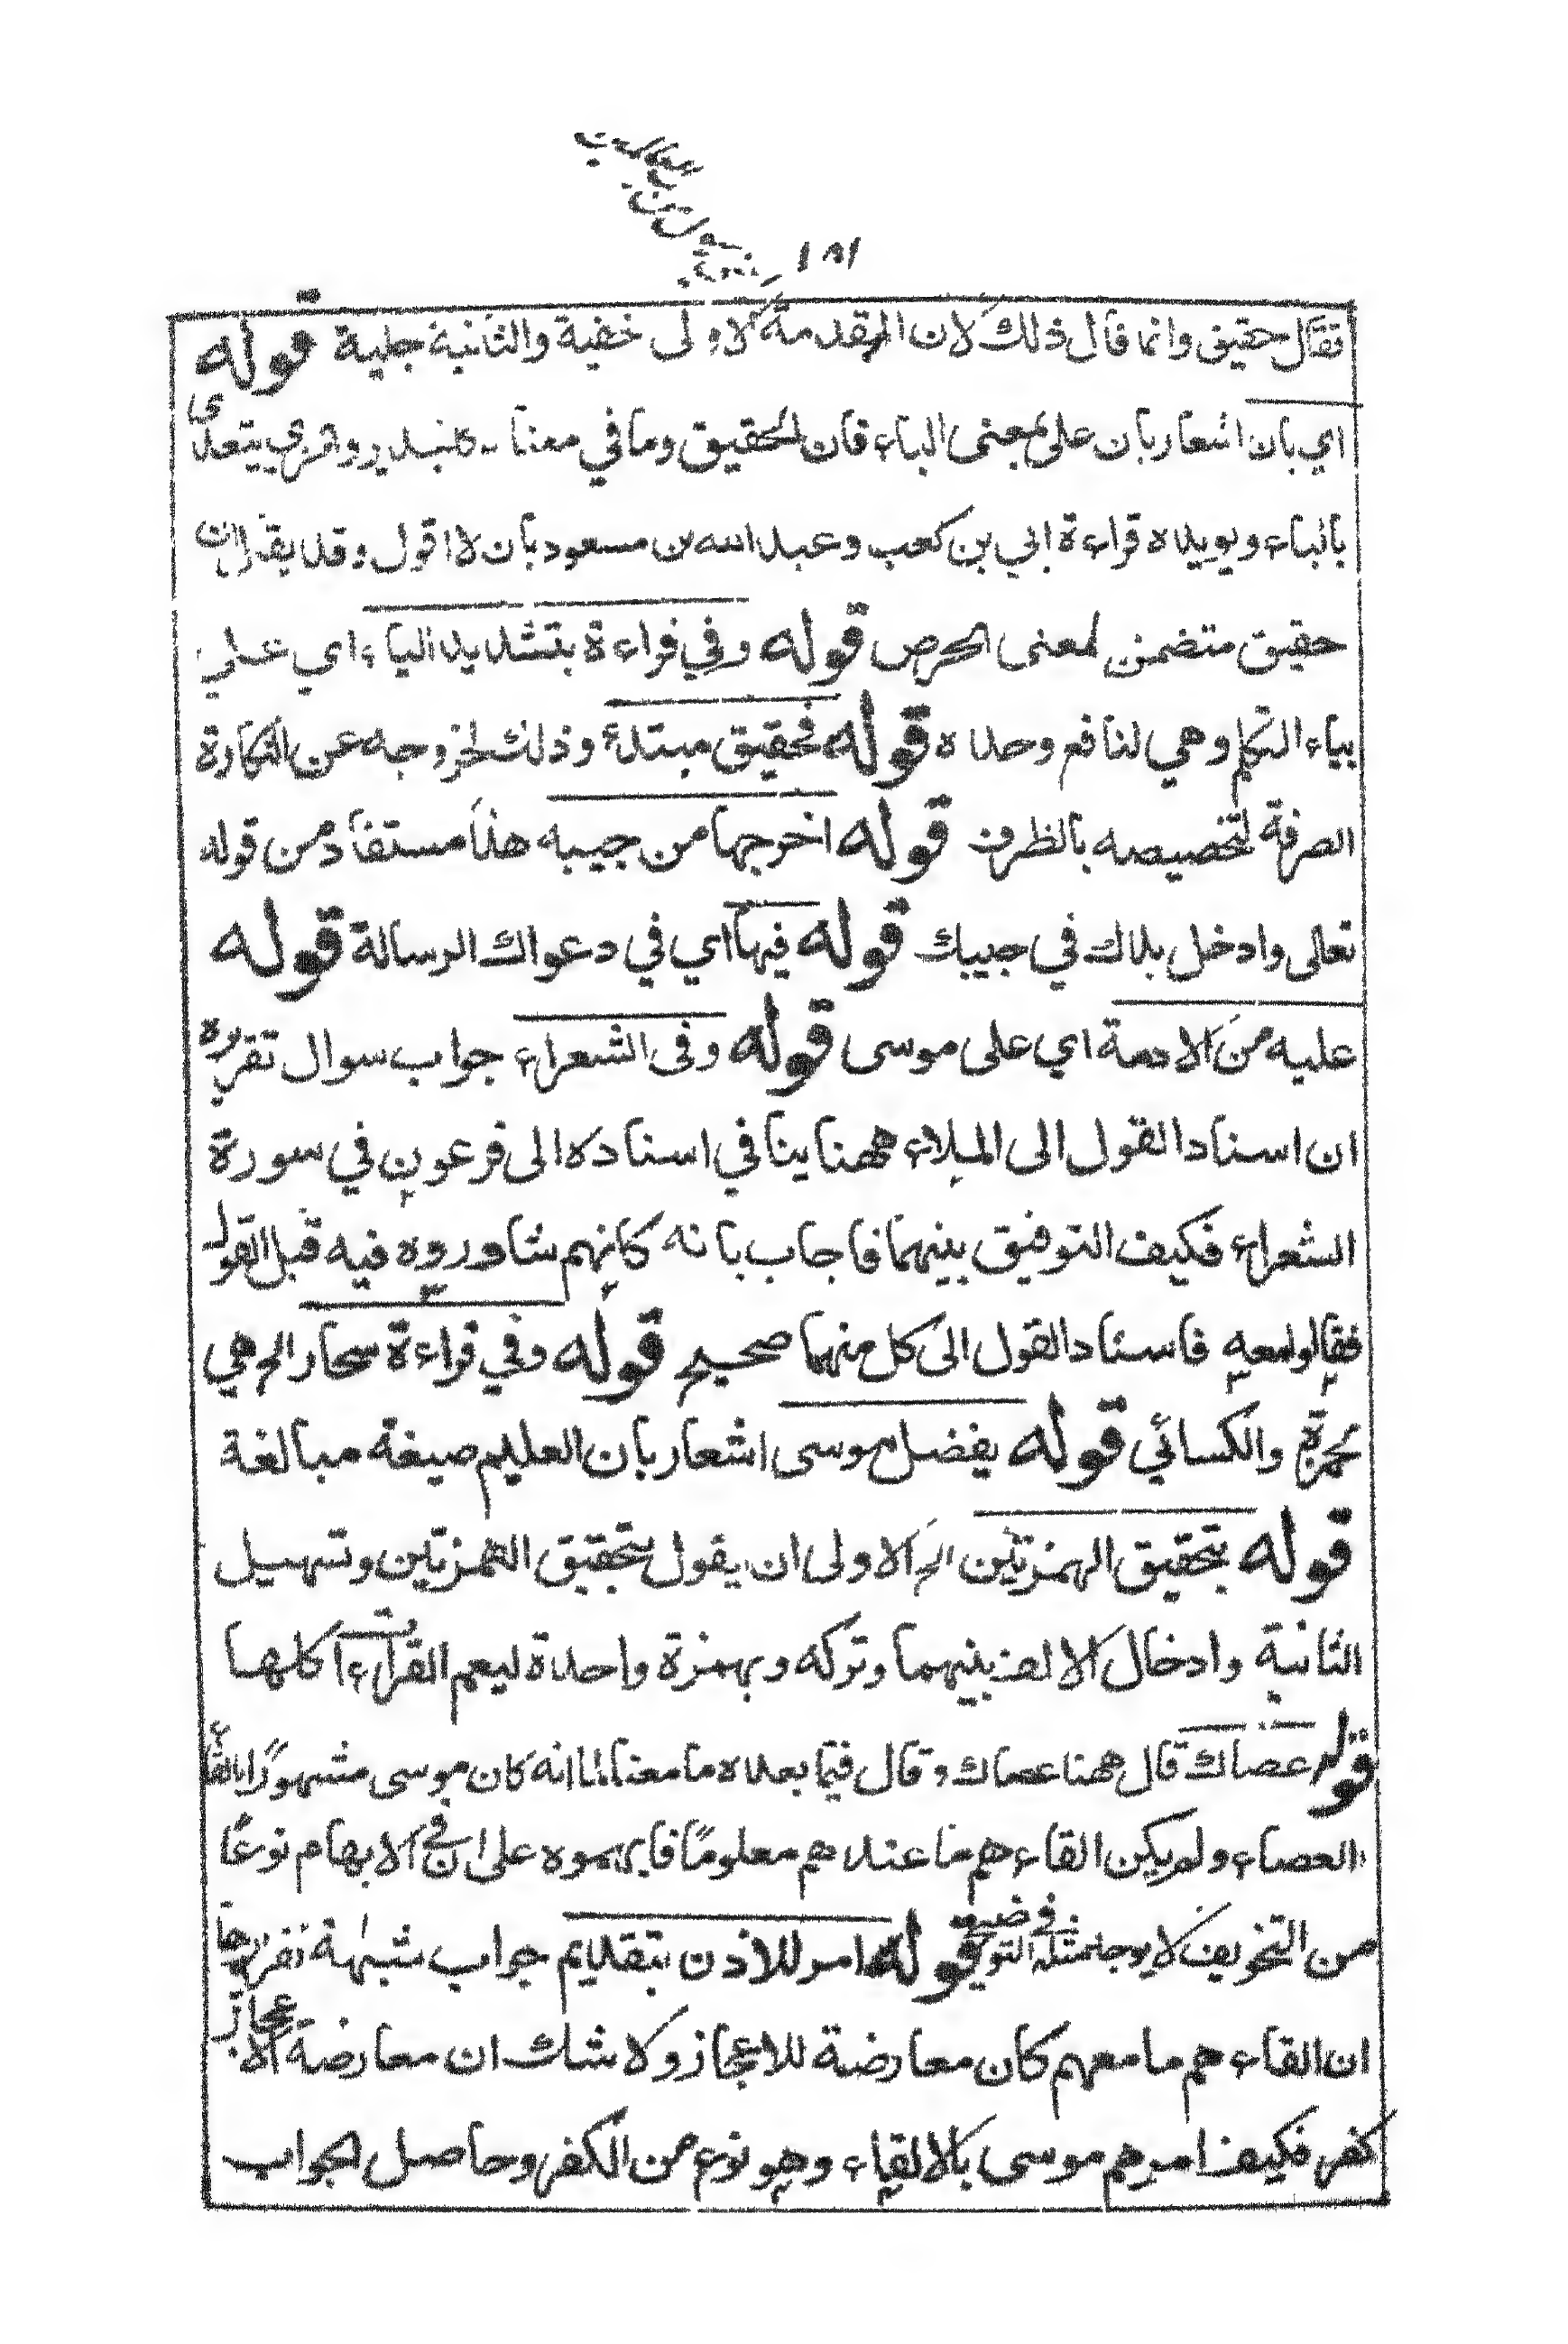 ١٨١
فقال حقيق وانما قال ذلك لان المقدمة الاولى خفية والثانية جلية قوله
اي بان اشعار بان على بمعنى الباء فان الحقيق وما في معناه يتعدى
بالباء ويويده قراءة ابي بن كعب وعبد الله بن مسعود بان لا اقول وقد يقال ان
حقيق متضمن لمعنى الحرص قوله وفي قراءة بتشديد الياء اي علي
بياء التكلم وهي لنافع وحده قوله فحقيق مبتدء وذلك لخروجه عن النكارة
الصرفة لتخصيصه بالظرف قوله اخرجها من جيبه هذا مستفاد من قوله
تعالى وادخل يدك في جيبك قوله فيها اي في دعواك الرسالة قوله
عليه من الادمة اي على موسى قوله وفى الشعراء جواب سوال تقريره
ان اسناد القول الى الملاء ههنا ينافي اسناده الى فرعون في سورة
الشعراء فكيف التوفيق بينهما فاجاب بانه كانهم شاوروه فيه قبل القول
فقالوا معه فاسناد القول الى كل منهما صحيح قوله وفي قراءة سحار الخ هي
لحمزة والكسائي قوله يفضل موسى اشعار بان العليم صيغة مبالغة
قوله بتحقيق الهمزتين الخ الاولى ان يقول بتحقيق الهمزتين وتسهيل
الثانية وادخال الالف بينهما وتركه وبهمزة واحدة ليعم القراءآت كلها
قوله عصاك قال ههنا عصاك وقال فيما بعده ما معنا لما انه كان موسى مشهورًا بالقاء
العصاء ولم يكن القاء هم ما عندهم معلومًا فابهموه على ان في الابهام نوعًا
من التخويف لا يوجد مثله في التوضيح قوله امر للاذن بتقديم جواب شبهة تقريرها
ان القاء هم ما معهم كان معارضة للاعجاز ولا شك ان معارضة الاعجاز
كفر فكيف امرهم موسى بالالقاء وهو نوع من الكفر وحاصل الجواب